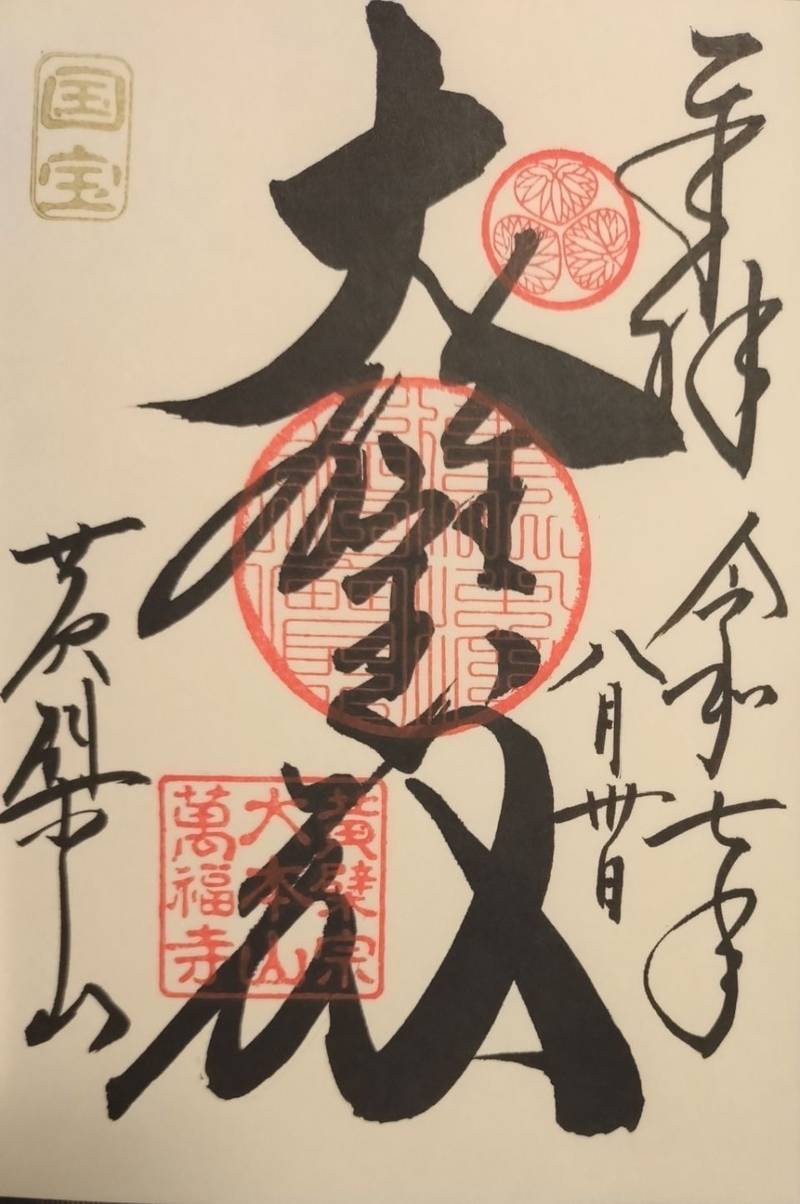 奉拝
令和七年
八月卅日
大雄宝殿
黄檗山
国宝
黄檗宗
大本山
萬福寺